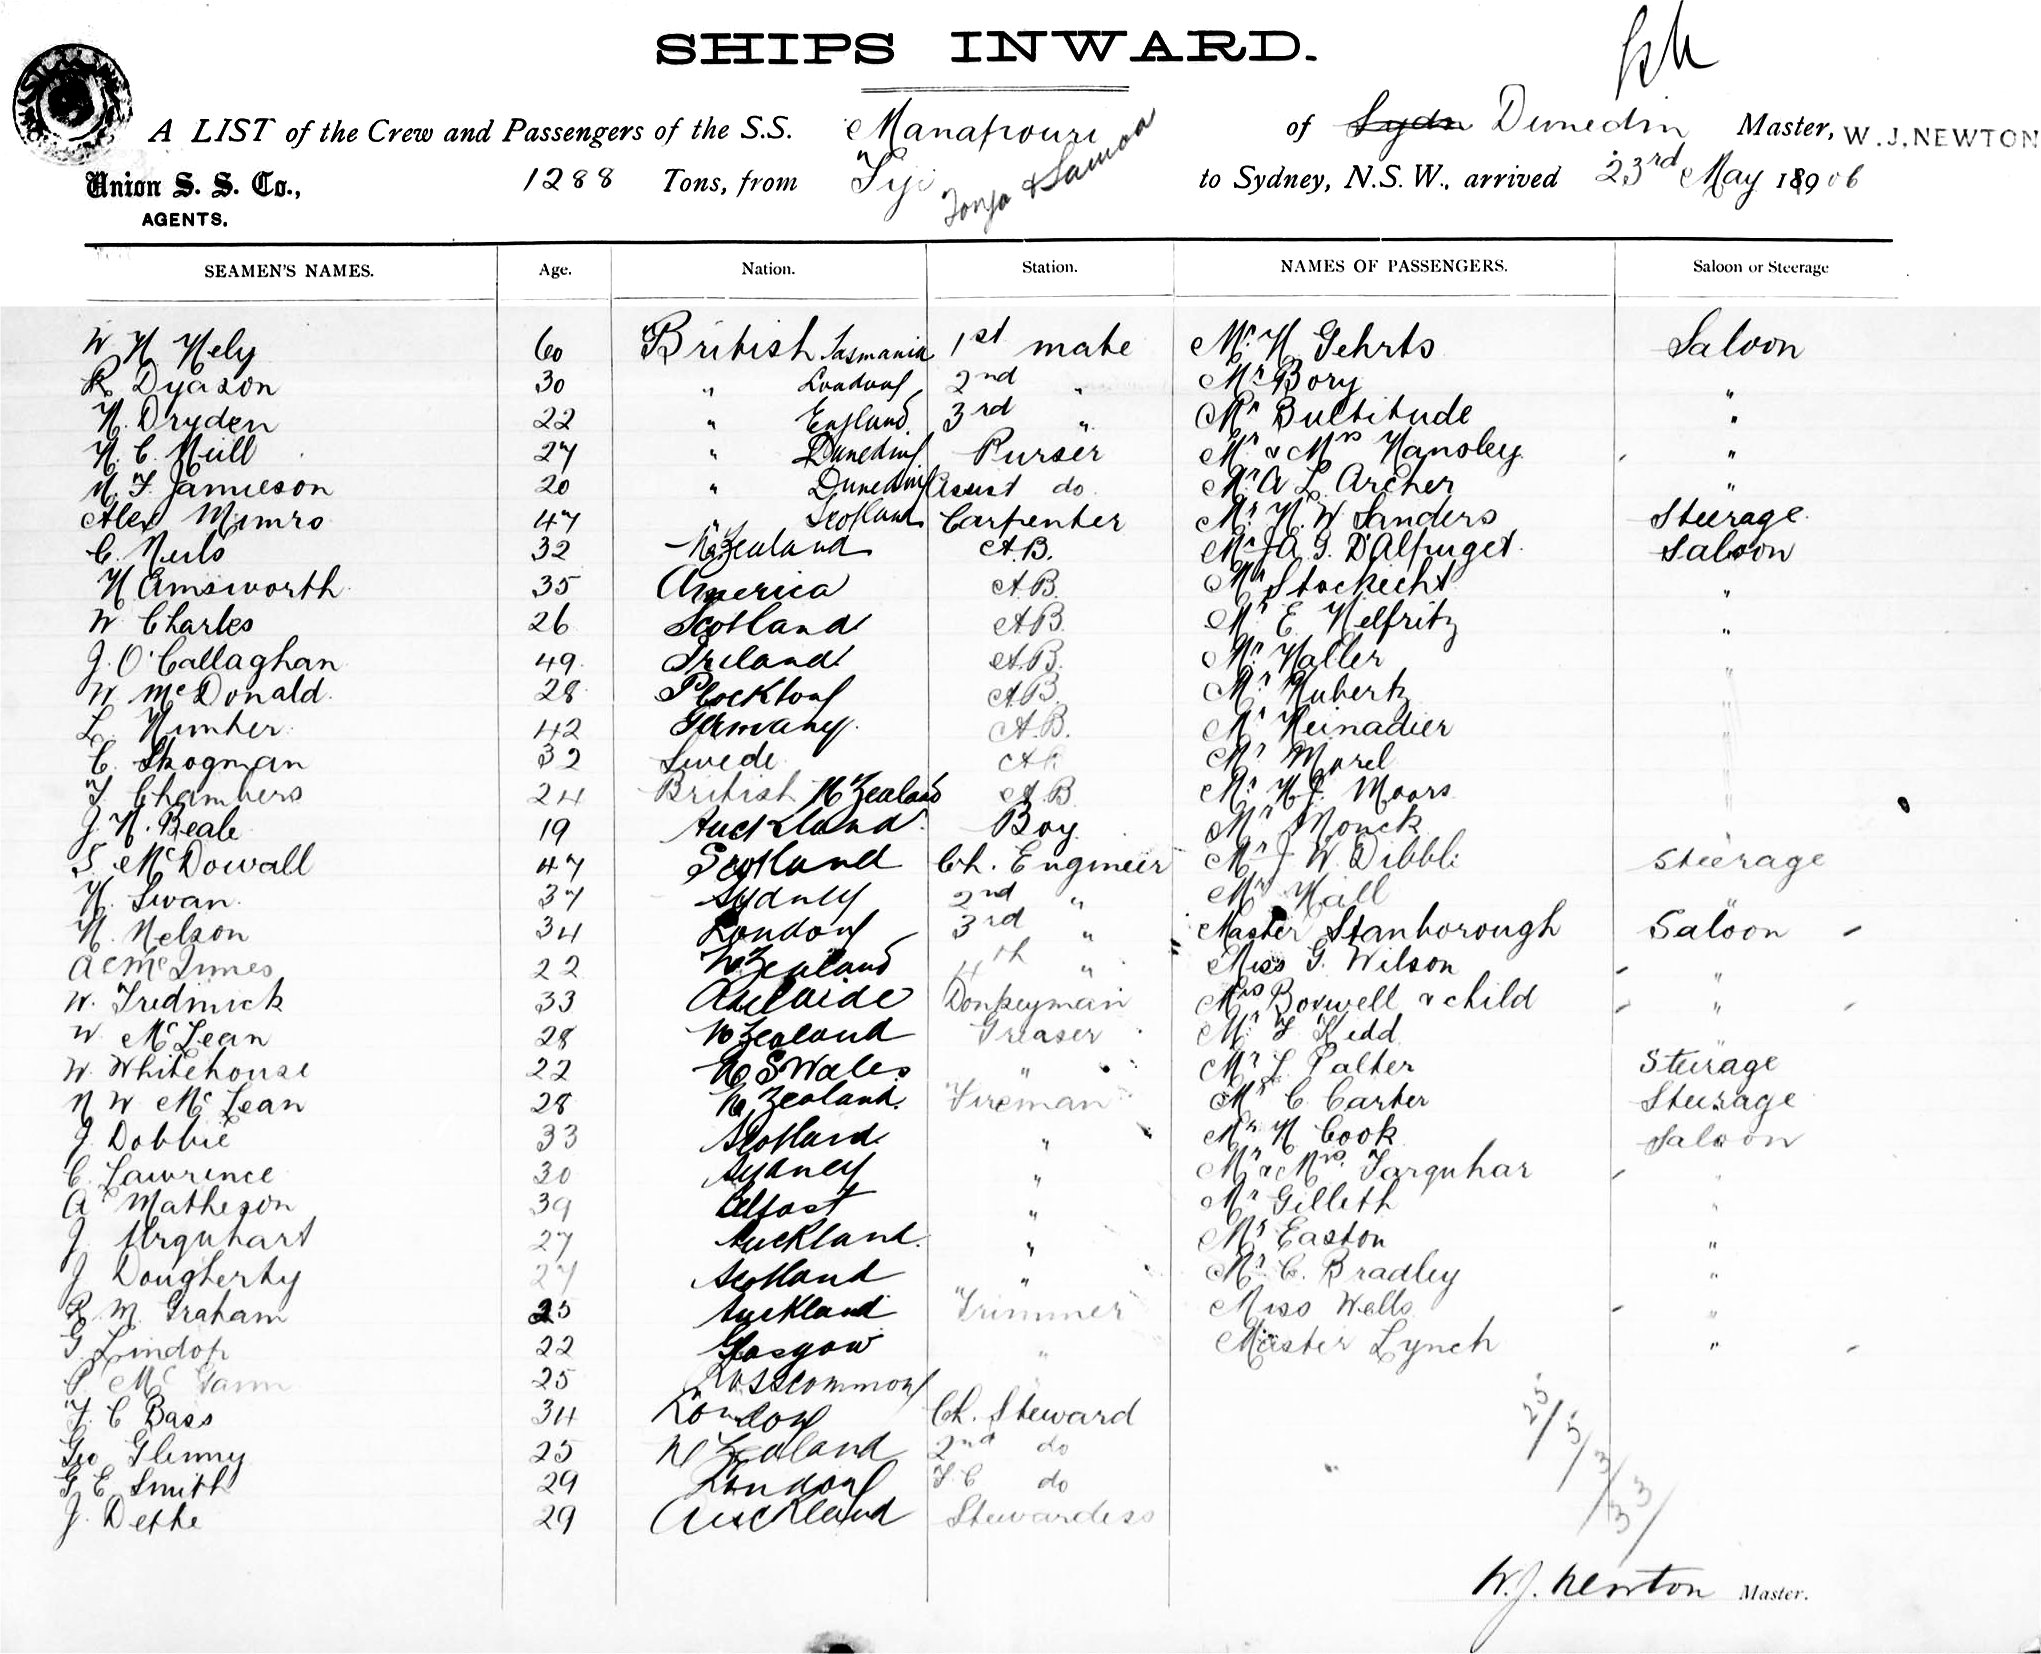 SHIPS INWARD.
A LIST of the Crew and Passengers of the S.S. Manapouri of Sydn Dunedin Master, W. J. NEWTON
Union S. S. Co., 1288 Tons, from Fiji Tonga & Samoa to Sydney, N.S.W., arrived 23rd May 189 06
AGENTS.
SEAMEN'S NAMES. Age. Nation. Station. NAMES OF PASSENGERS. Saloon or Steerage
W H Hely 60 British Tasmania 1st mate Mr. H. Gehrts Saloon
R Dyason 30 " London 2nd " Mr Bory "
H. Dryden 22 " England 3rd " Mr Bultitude "
H. C. Neill 27 " Dunedin Purser Mr & Mrs Hansley "
N. F. Jamieson 20 " Dunedin Assist do. Mr A L Archer "
Alex Munro 47 " Scotland Carpenter Mr. H. W Sanders Steerage
C. Neils 32 N Zealand A.B. Mr J A G. D'Alpuget Saloon
H Ainsworth 35 America A.B. Mr Stockicht "
W Charles 26 Scotland A.B. Mr E Helfritz "
J. O'Callaghan 49 Ireland A.B. Mr Haller "
W McDonald 28 Plockton A.B. Mr Hubertz "
L. 42 Germany A.B. Mr "
C. Skogman 32 Swede A.B. Mr Morel "
F Chambers 24 British N Zealand A.B. Mr H. J. Moors "
J. H. Beale 19 Auckland Boy Mr Monck "
S. McDowall 47 Scotland Ch. Engineer Mr J W. Dibble Steerage
H. Swan 37 Sydney 2nd " Mr Hall "
H. Nelson 34 London 3rd " Master Stanborough Saloon
A C McInnes 22 N Zealand 4th " Miss G. Wilson "
W. Tredinnick 33 Adelaide Donkeyman Mrs Boswell & child "
W McLean 28 N Zealand Greaser Mr F Kidd "
W. Whitehouse 22 N S Wales " Mr L Palter Steerage
N W McLean 28 N Zealand Fireman Mr C Carter Steerage
J Dobbie 33 Scotland " Mr H Cook Saloon
C. Lawrence 30 Sydney " Mr & Mrs. Farquhar "
A Matheson 39 Belfast " Mr Gilleth "
J Urquhart 27 Auckland " Mr Easton "
J Dougherty 27 Scotland " Mr C. Bradley "
R M. Graham 25 Auckland Trimmer Miss Wells "
G Lindop 22 Glasgow " Master Lynch "
P. McGann 25 Rosscommon
F. C Bass 34 London Ch. Steward
Geo Glenny 25 N Zealand 2nd do
G E Smith 29 London F. C do
J. Dethe 29 Auckland Stewardess
25/5/3/33/
W. J. Newton Master.